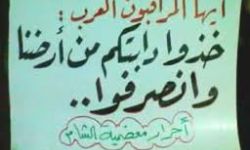 أيها المراقبون العرب :
خذوا دابتكم من أرضنا
وانصرفوا..
أحرار معضمية الشام